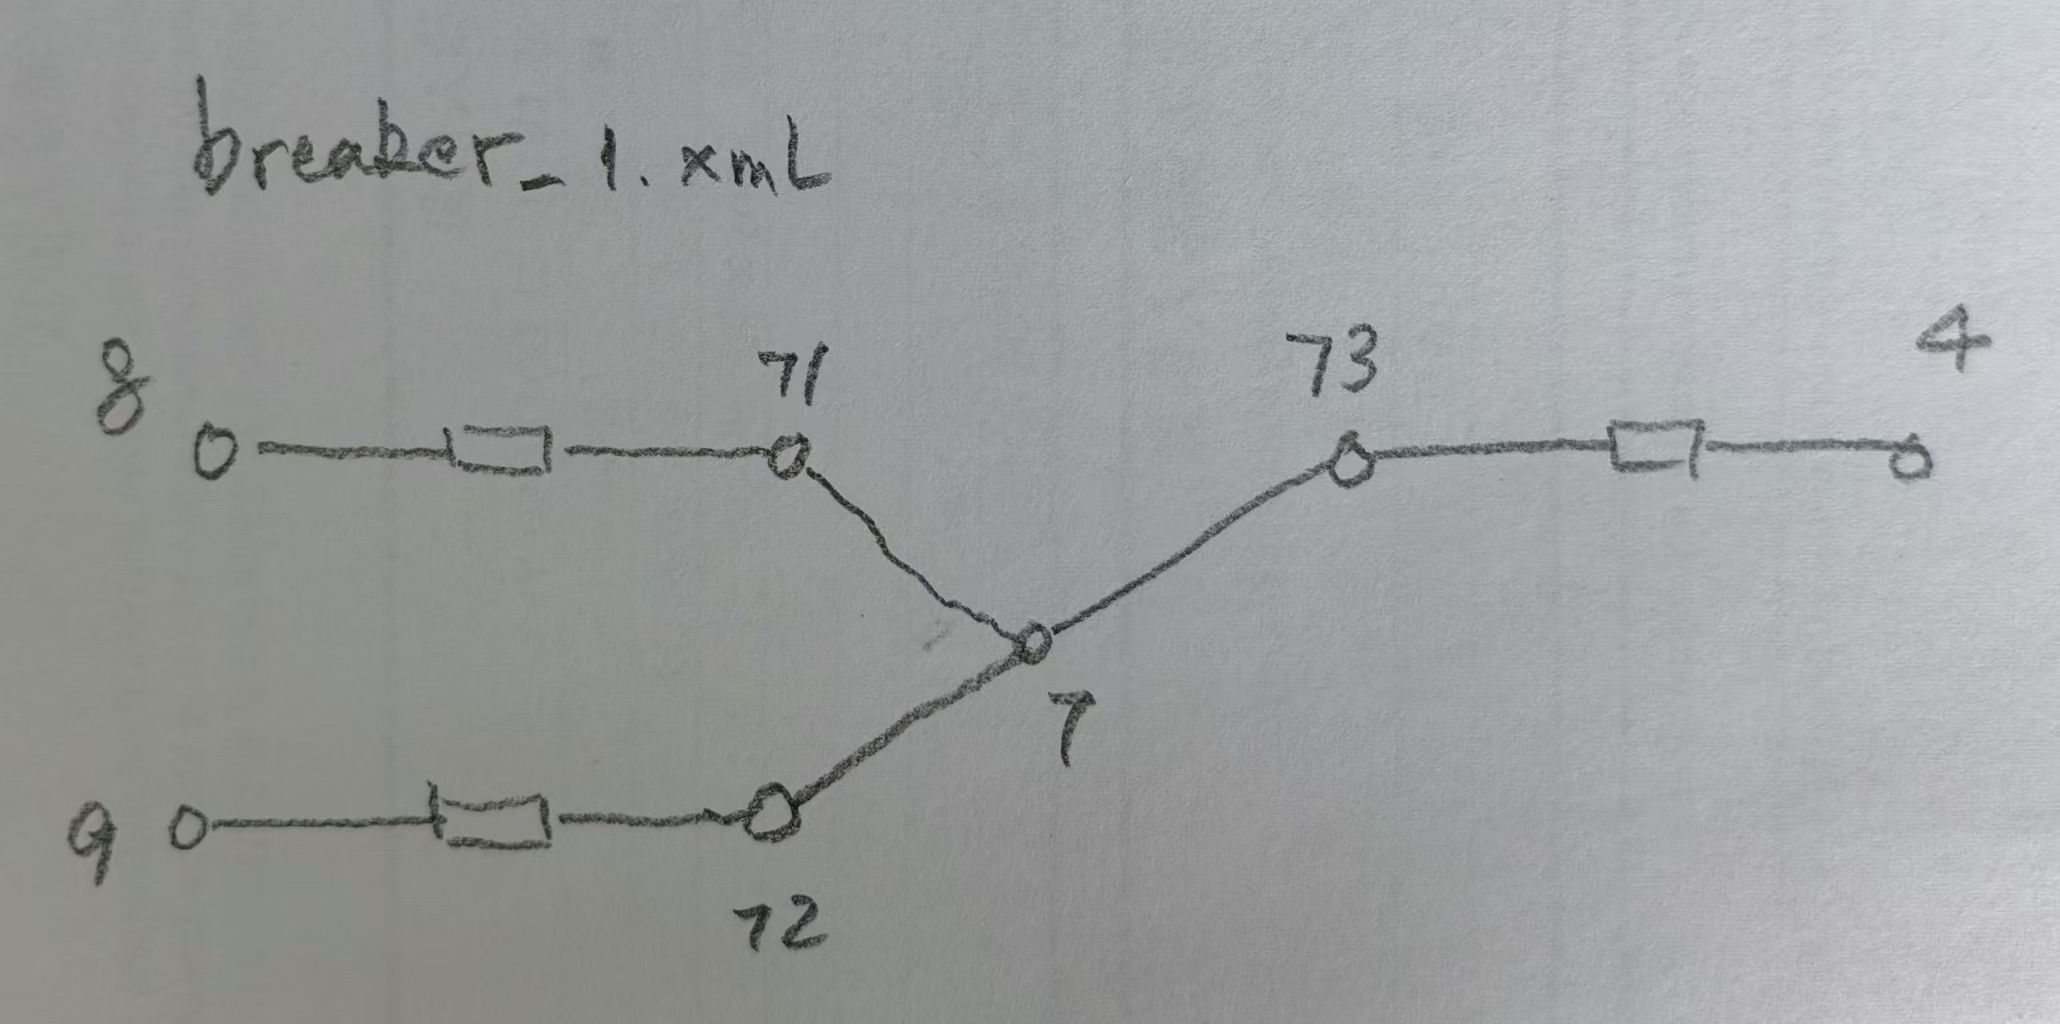 breaker_1.xmL
8
71
73
4
7
9
72